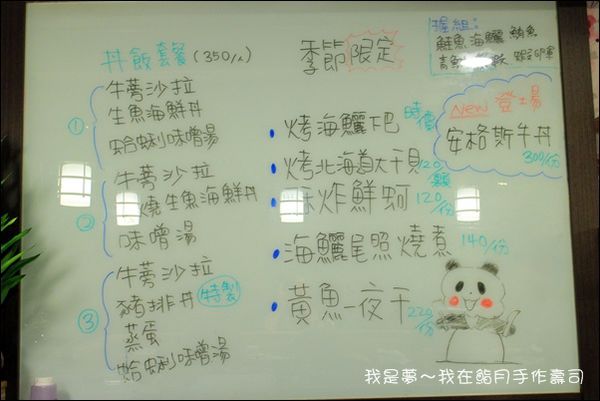 丼飯套餐 (350/人)
① 牛蒡沙拉
生魚海鮮丼
蛤蜊味噌湯
② 牛蒡沙拉
燒生魚海鮮丼
味噌湯
③ 牛蒡沙拉
豬排丼 特製
蒸蛋
蛤蜊味噌湯
季節限定
• 烤海鱺下巴 時價
• 烤北海道大干貝 120/顆
酥炸鮮蚵 120/份
• 海鱺尾照燒煮 140/份
• 黃魚一夜干 220/份
握組:
鮭魚 海鱺 鮪魚
蝦 卵軍
New 登場
安格斯牛丼
300/份
我是夢~我在鮨月手作壽司